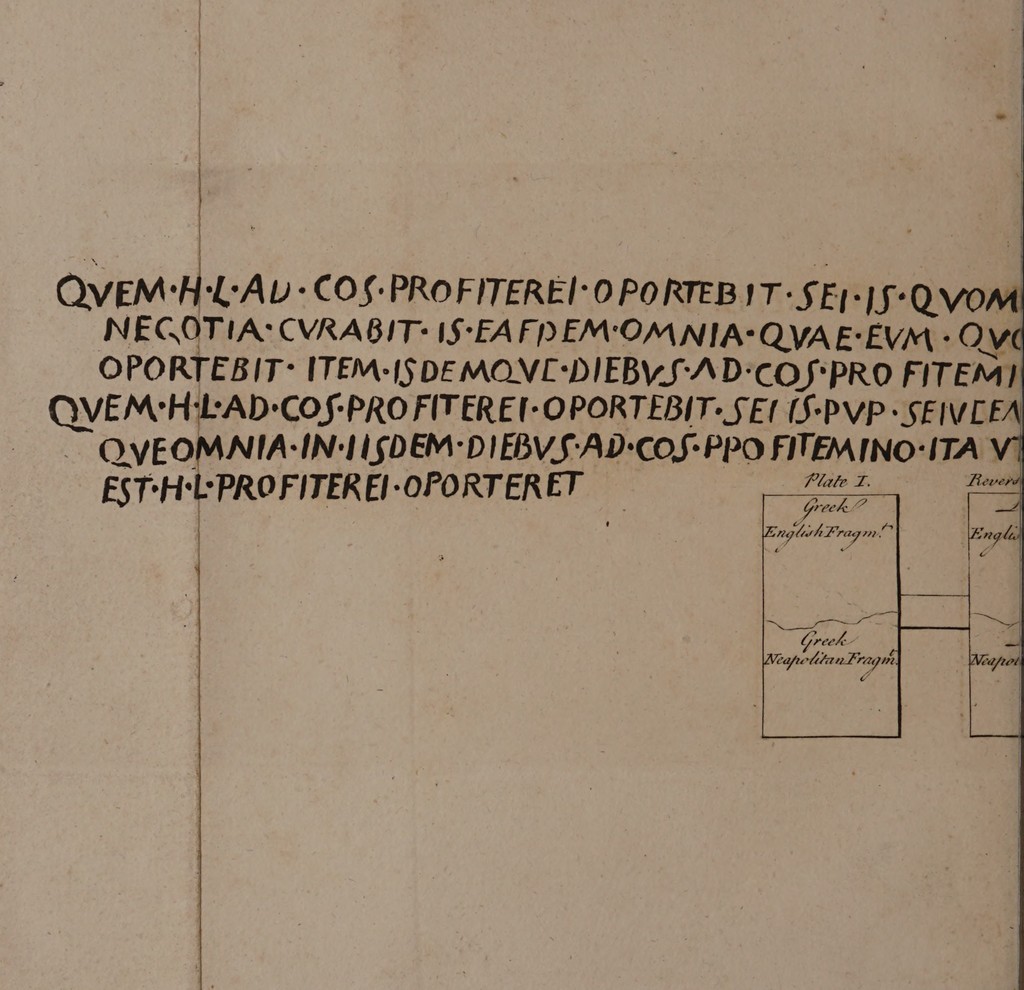 QVEM·H·L·AD·COS·PROFITEREI·OPORTEBIT·SEI·IS·QVOM
NEGOTIA·CVRABIT·IS·EAFDEM·OMNIA·QVAE·EVM·QVO
OPORTEBIT·ITEM·ISDEMQVE·DIEBVS·AD·COS·PROFITEMI
QVEM·H·L·AD·COS·PROFITEREI·OPORTEBIT·SEI IS·PVP·SEIVEEA
QVEOMNIA·IN·IISDEM·DIEBVS·AD·COS·PPOFITEMINO·ITA V
EST·H·L·PROFITEREI·OPORTERET
Plate I. Revers
Greek
English Fragmt. Englis
Greek
Neapolitan Fragm. Neapoli